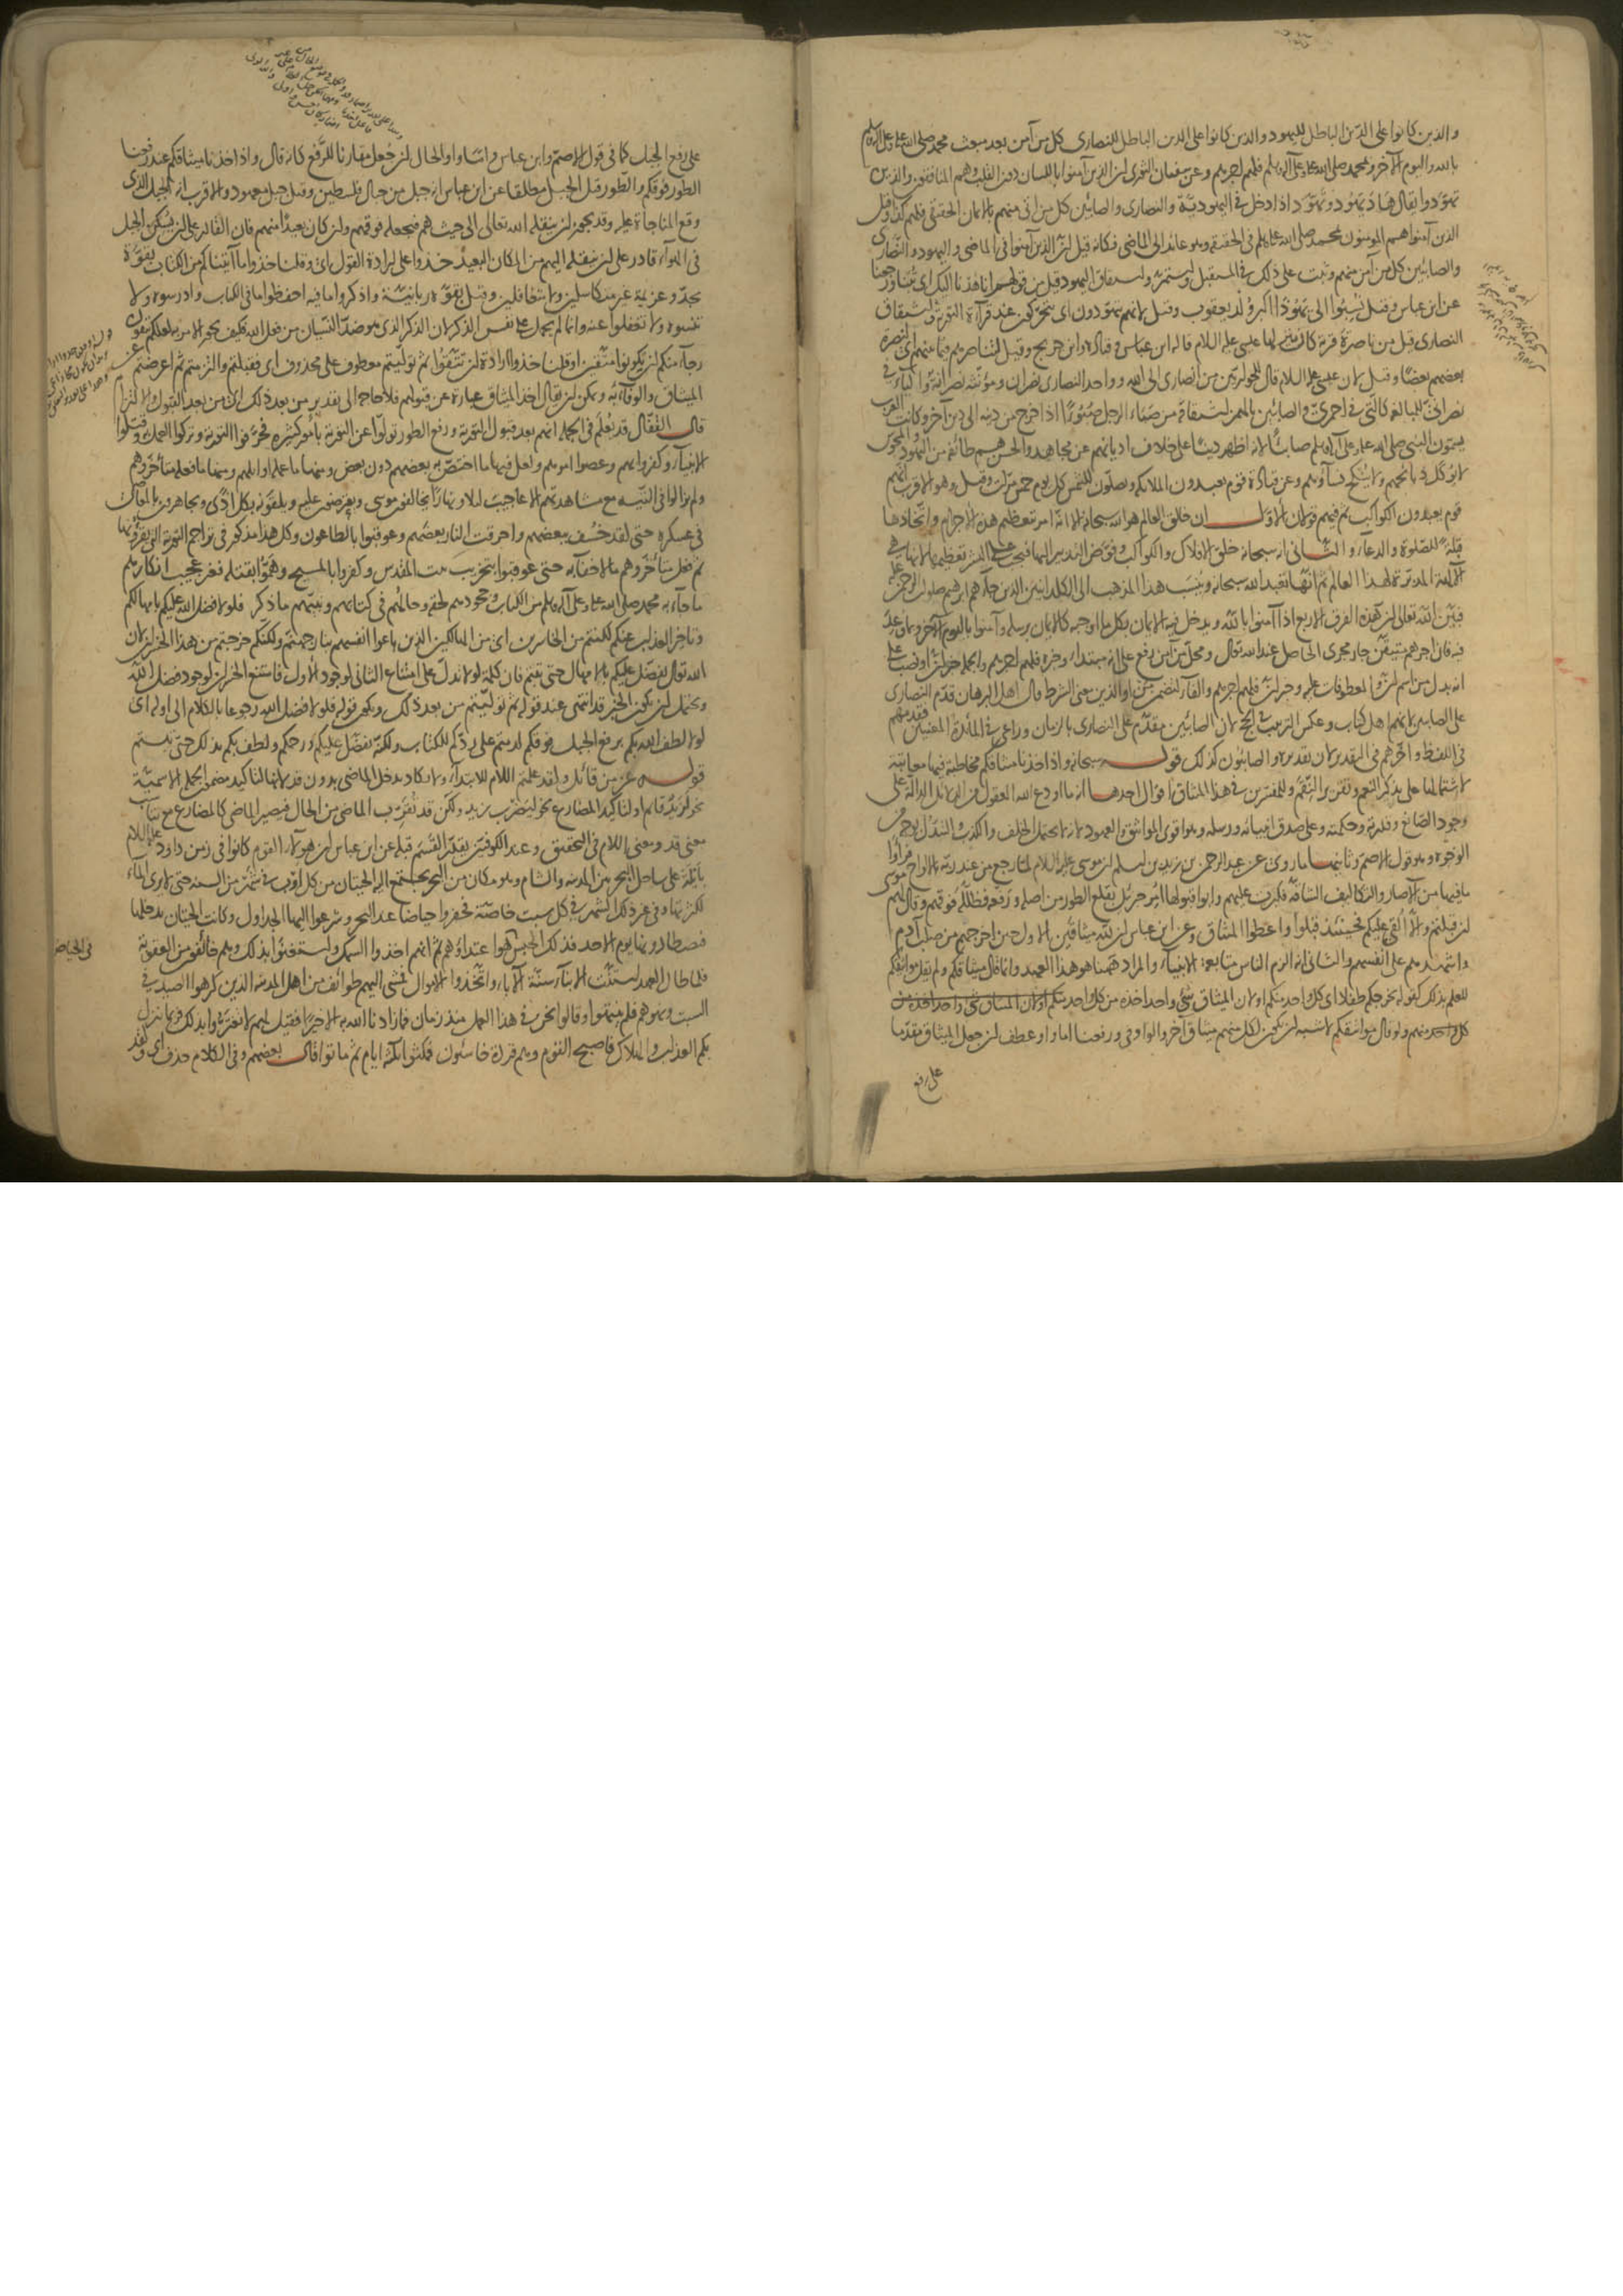 والذين كانوا على الدين الباطل لليهود والذين كانوا على الدين الباطل للنصارى كل من آمن بعد مبعث محمد صلى الله عليه وعلى آله وسلم
بالله واليوم الآخر وبمحمد صلى الله عليه وعلى آله وسلم فلهم اجرهم وعن سفيان الثورى ان الذين آمنوا باللسان دون القلب وهم المنافقون والذين
تهودوا يقال هاد يهود وتهود اذا دخل في اليهودية والنصارى والصابئين كل من اتى منهم بالايمان الحقيقى فلهم كذا وقيل
الذين آمنوا هم المؤمنون بمحمد صلى الله عليه وسلم فى الحقيقة وهو عائد الى الماضى فكانه قيل ان الذين آمنوا فى الماضى واليهود والنصارى
والصابئين كل من آمن منهم وثبت على ذلك في المستقبل واستمر واشتقاق اليهود قيل من قولهم انا هدنا اليك اى تبنا ورجعنا
عن ابن عباس وقيل نسبوا الى يهوذا اكبر ولد يعقوب وقيل لانهم يتهودون اى يتحركون عند قراءة التورية واشتقاق
النصارى قيل من ناصرة قرية كان ينزلها عيسى عليه السلام قاله ابن عباس وقتادة وابن جريج وقيل لتناصرهم فيما بينهم اى لنصرة
بعضهم بعضا وقيل لان عيسى عليه السلام قال للحواريين من انصارى الى الله وواحد النصارى نصران ومؤنثه نصرانة والياء في
نصرانى للمبالغة كالتى في احمرى والصابئين بالهمز اشتقاقه من صبأ الرجل صبوءا اذا خرج من دينه الى دين آخر وكانت العرب
يسمون النبى صلى الله عليه وعلى آله وسلم صابئا لانه اظهر دينا على خلاف اديانهم عن مجاهد والحسن هم طائفة من اليهود والمجوس
لا يؤكل ذبائحهم ولا ينكح نساؤهم وعن قتادة قوم يعبدون الملائكة ويصلون للشمس كل يوم خمس مرات وقيل وهو الاقرب انهم
قوم يعبدون الكواكب ثم فيهم قولان الاول ان خالق العالم هو الله سبحانه الا انه امر بتعظيم هذه الاجرام واتخاذها
قبلة للصلوة والدعاء والثانى انه سبحانه خلق الافلاك والكواكب وفوض التدبير اليها فيجب على البشر تعظيمها لانها هى
الآلهة المدبرة لهذا العالم ثم انها تعبد الله سبحانه وينسب هذا المذهب الى الكلدانيين الذين جاءهم ابرهيم صلوات الرحمن عليه
فبين الله تعالى ان هذه الفرق الاربع اذا آمنوا بالله ويدخل فيه الايمان بكل ما اوجبه كالايمان برسله وآمنوا باليوم الآخر وما وعد
فيه فان اجرهم متيقن جار مجرى الحاصل عند الله تعالى ومحل من آمن رفع على انه مبتدأ وخبره فلهم اجرهم والجملة خبر ان او نصب على
انه بدل من اسم ان والمعطوفات عليه وخبر ان فلهم اجرهم والفاء لتضمن من او الذين معنى الشرط قال اهل البرهان قدم النصارى
على الصابئين لانهم اهل كتاب وعكس الترتيب في الحج لان الصابئين مقدم على النصارى بالزمان وراعى في المائدة المعنيين فقدمهم
فى اللفظ واخرهم فى التقدير لان تقديره والصابئون كذلك قوله سبحانه واذ اخذنا ميثاقكم مخاطبة فيها معاتبة
لاشتمالها على ذكر النعم وتقرير النقم وللمفسرين في هذا الميثاق اقوال احدها انه ما اودع الله العقول من الدلائل الدالة على
وجود الصانع وقدرته وحكمته وعلى صدق انبيائه ورسله وهو اقوى المواثيق والعهود لانه لا يحتمل الخلف والكذب والتبدل بوجه من
الوجوه وهو قول الاصم وثانيها ما روى عن عبد الرحمن بن زيد بن اسلم ان موسى عليه السلام لما رجع من عند ربه بالالواح فراوا
ما فيها من الآصار والتكاليف الشاقة فكبرت عليهم وابوا قبولها امر جبرئيل بقلع الطور من اصله ورفعه فظلله فوقهم وقال لهم موسى
ان قبلتم والا القى عليكم فحينئذ قبلوا واعطوا الميثاق وعن ابن عباس ان لله ميثاقين الاول حين اخرجهم من صلب آدم
واشهدهم على انفسهم والثانى انه الزم الناس متابعة الانبياء والمراد ههنا هو هذا العهد وانما قال ميثاقكم ولم يقل مواثيقكم
للعلم بذلك كقوله نخرجكم طفلا اى كل واحد منكم او لان الميثاق شئ واحد اخذه من كل واحد منكم
كل واحد منهم ولو قال مواثيقكم لاشبه ان يكون لكل منهم ميثاق آخر والواو فى ورفعنا اما واو عطف ان جعل الميثاق مقدما
على رفع
على رفع الجبل كما فى قول الاصم وابن عباس واما واو الحال ان جعل مقارنا للرفع كانه قال واذ اخذنا ميثاقكم عند رفعنا
الطور فوقكم والطور قيل الجبل مطلقا عن ابن عباس انه جبل من جبال فلسطين وقيل جبل معهود والاقرب انه الجبل الذى
وقع المناجاة عليه وقد يجوز ان ينقله الله تعالى الى حيث هم فيجعله فوقهم وان كان بعيدا منهم فان القادر على ان يسكن الجبل
فى الهواء قادر على ان ينقله اليهم من المكان البعيد خذوا على ارادة القول اى وقلنا خذوا ما آتيناكم من الكتاب بقوة
بجد وعزيمة غير متكاسلين ولا متغافلين وقيل بقوة ربانية واذكروا ما فيه احفظوا ما فى الكتاب وادرسوه ولا
تنسوه ولا تغفلوا عنه وانما لم يحمل على نفس الذكر لان الذكر الذى هو ضد النسيان من فعل الله فكيف يجوز الامر به لعلكم تتقون
رجاء منكم ان يكونوا متقين او قلنا خذوا ارادة ان تتقوا ثم توليتم معطوف على محذوف اى فقبلتم والتزمتم ثم اعرضتم عن
الميثاق والوفاء به ويمكن ان يقال اخذ الميثاق عبارة عن قبولهم فلا حاجة الى تقدير من بعد ذلك اى من بعد القبول والالتزام
قال القفال قد يعلم فى الجملة انهم بعد قبول التورية ورفع الطور تولوا عن التورية بامور كثيرة فحرفوا التورية وتركوا العمل بها وقتلوا
الانبياء وكفروا بهم وعصوا امرهم ولعل فيها ما اختص به بعضهم دون بعض ومنها ما عمله اوائلهم ومنها ما فعله متأخروهم
ولم يزالوا فى التيه مع مشاهدتهم الاعاجيب ليلا ونهارا يخالفون موسى ويعترضون عليه ويلقونه بكل اذى ويجاهرون بالمعاصى
فى عسكره حتى لقد خسف ببعضهم واحرقت النار بعضهم وعوقبوا بالطاعون وكل هذا مذكور فى تراجم التورية التى يقرؤنها
ثم فعل متأخروهم ما لا خفاء به حتى عوقبوا بتخريب بيت المقدس وكفروا بالمسيح وهموا بقتله فغير عجيب انكارهم
ما جاء به محمد صلى الله عليه وعلى آله وسلم من الكتاب وجحودهم لحقه وحالهم فى كتابهم ونبيهم ما ذكر فلولا فضل الله عليكم بامهالكم
وتاخير العذاب عنكم لكنتم من الخاسرين اى من الهالكين الذين باعوا انفسهم بنار جهنم ولكنكم خرجتم من هذا الخسران لان
الله تعالى تفضل عليكم بالامهال حتى تبتم فان كلمة لولا تدل على امتناع الثانى لوجود الاول فامتنع الخسران لوجود فضل الله
ويحتمل ان يكون الخبر قد انتهى عند قوله ثم توليتم من بعد ذلك ويكون قوله فلولا فضل الله رجوعا بالكلام الى اوله اى
لولا لطف الله بكم برفع الجبل فوقكم لدمتم على ردكم للكتاب ولكنه تفضل عليكم ورحمكم ولطف بكم بذلك حتى تبتم
قوله عز من قائل ولقد علمتم اللام للابتداء ولا يكاد يدخل الماضى بدون قد لانها لتاكيد مضمون الجملة الاسمية
نحو لزيد قائم او لتاكيد المضارع نحو ليضرب زيد ولكن قد تقرب الماضى من الحال فيصير الماضى كالمضارع مع تناسب
معنى قد ومعنى اللام فى التحقيق وعند الكوفيين يقدر القسم قبله عن ابن عباس ان هؤلاء القوم كانوا فى زمن داود عليه السلام
بايلة على ساحل البحر بين المدينة والشام وهو مكان من البحر يجتمع اليه الحيتان من كل اوب فى شهر من السنة حتى لا يرى الماء
لكثرتها وفى غير ذلك الشهر فى كل سبت خاصة فحفروا حياضا عند البحر وشرعوا اليها الجداول وكانت الحيتان يدخلها
فيصطادونها يوم الاحد فذلك الحبس هو اعتداؤهم ثم انهم اخذوا السمك واستغنوا بذلك وهم خائفون من العقوبة
فلما طال العهد استنت الابناء سنة الآباء واتخذوا الاموال فمشى اليهم طوائف من اهل المدينة الذين كرهوا الصيد فى
السبت ونهوهم فلم ينتهوا وقالوا نحن فى هذا العمل منذ زمان فما زادنا الله به الا خيرا فقيل لهم لا تغتروا بذلك فربما نزل
بكم العذاب والهلاك فاصبح القوم وهم قردة خاسئون فمكثوا ثلثة ايام ثم ماتوا قال بعضهم وفى الكلام حذف اى ولقد
فى الحياض